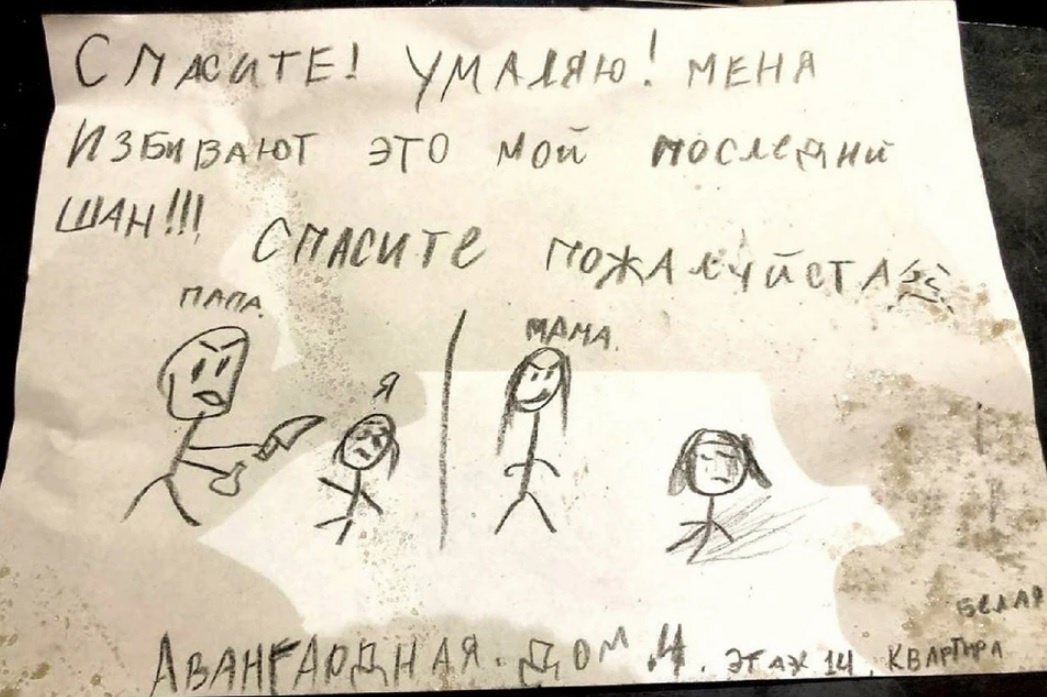 СПАСИТЕ! УМАЛЯЮ! МЕНЯ
ИЗБИВАЮТ ЭТО МОЙ ПОСЛЕДНИЙ
ШАН!!! СПАСИТЕ ПОЖАЛУЙСТА
ПАПА.
Я
МАМА.
АВАНГАРДНАЯ. ДОМ 4. ЭТАЖ 14. КВАРТИРА